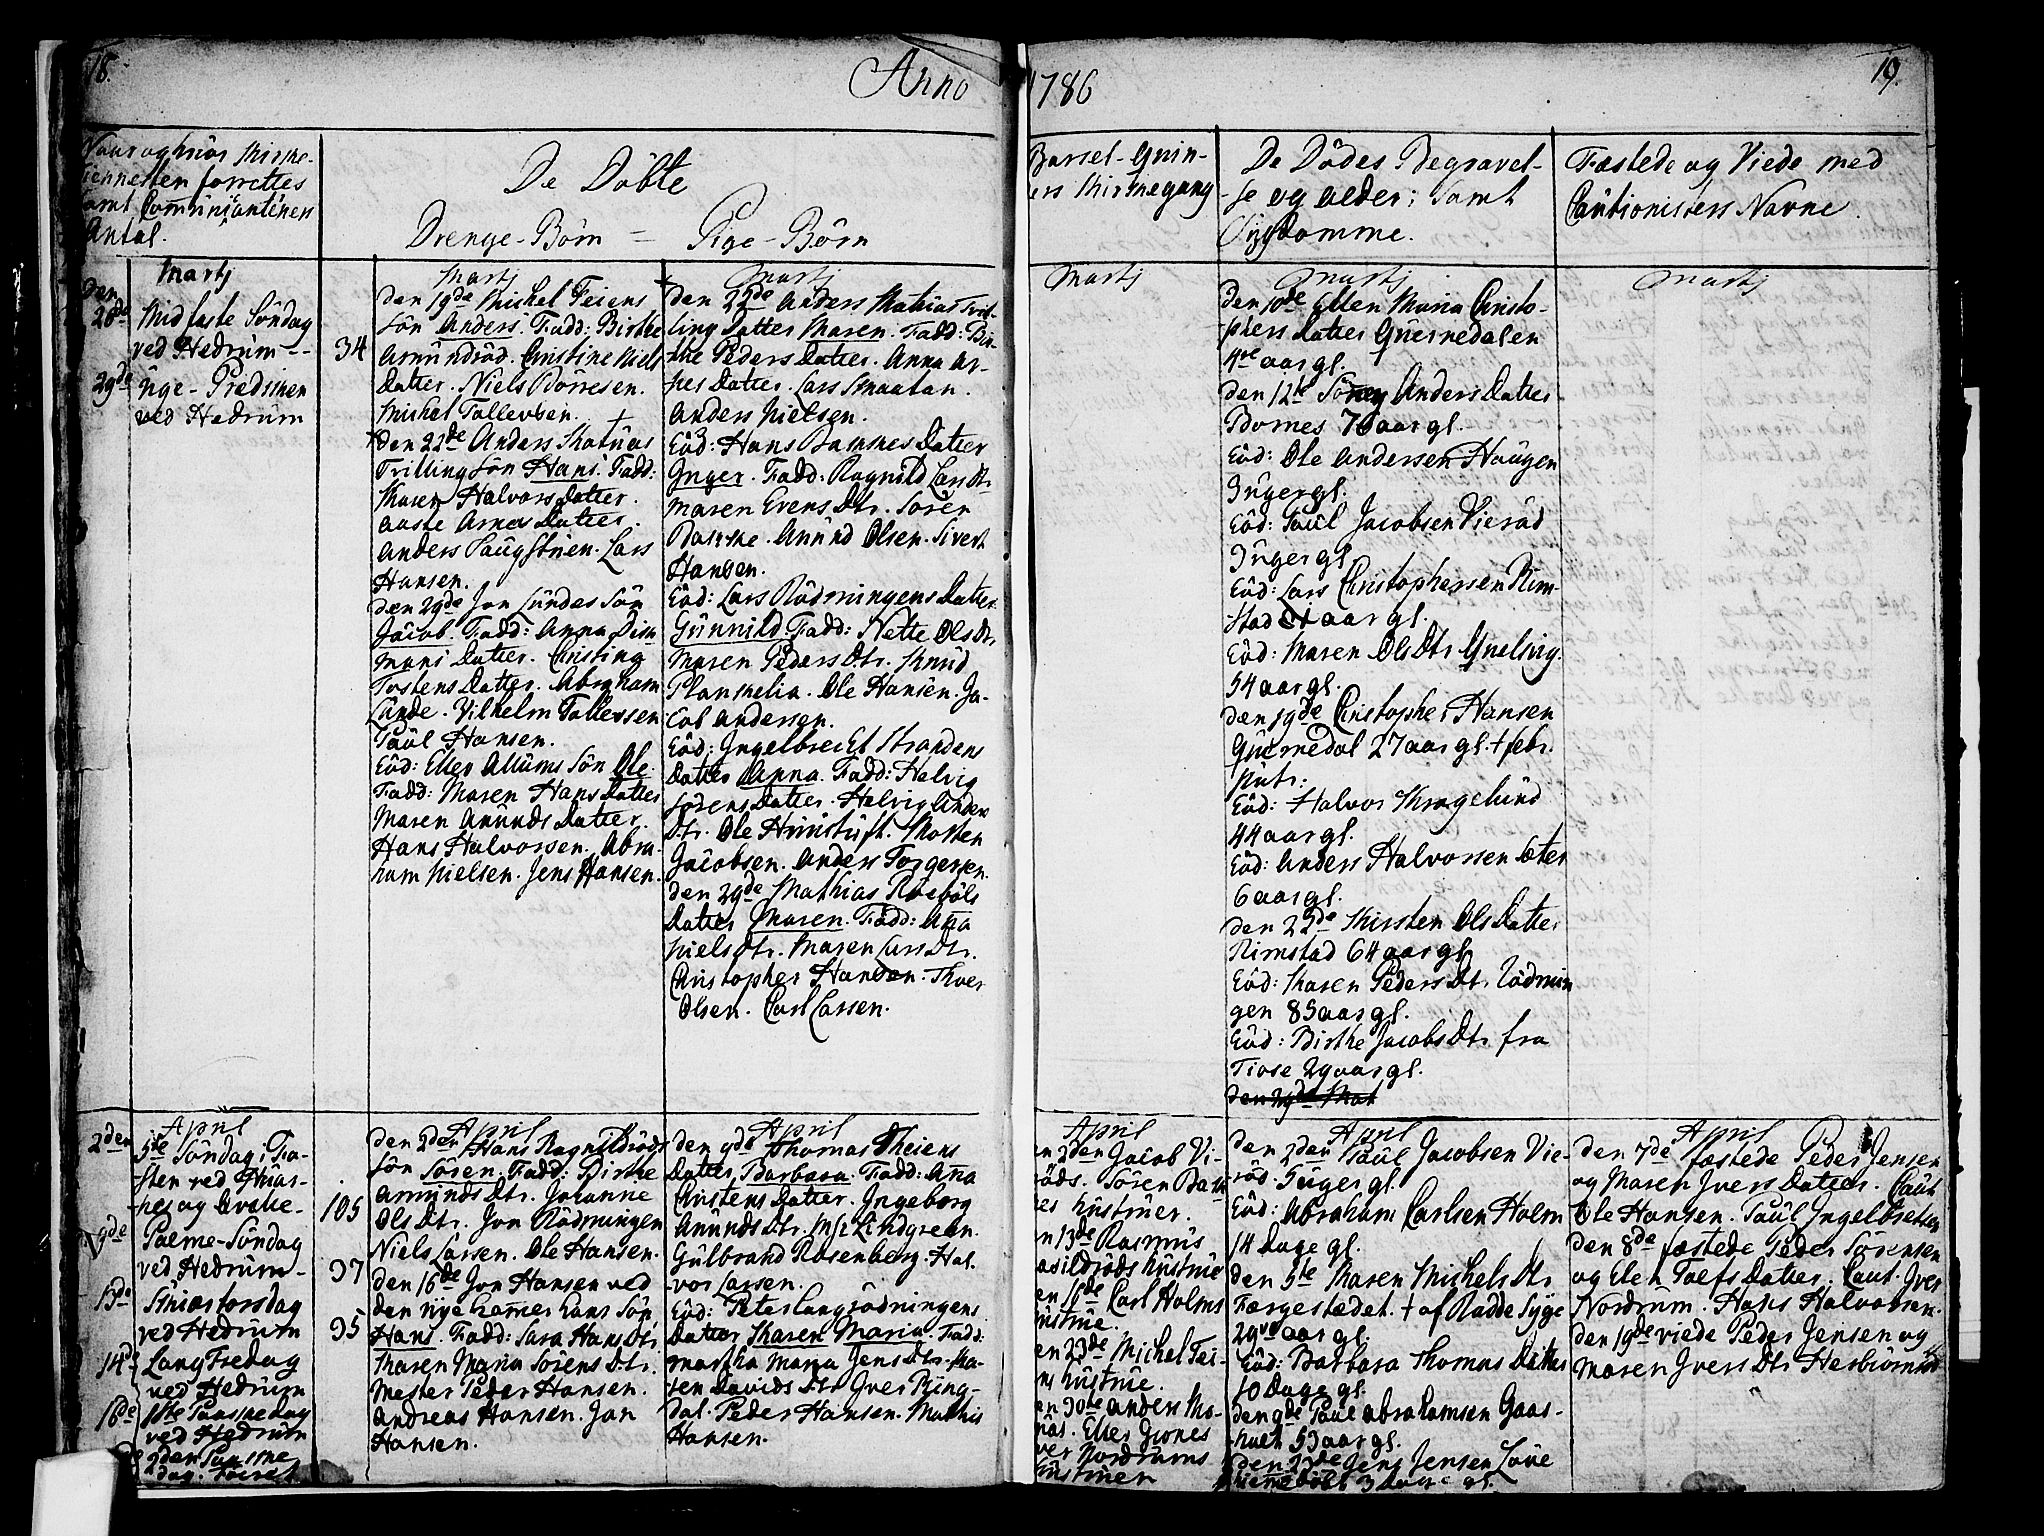 18.
Anno
1786
19.
Naar og hvor Kirke-
tiennesten forrettes
samt Communicantenen
Antal.
De Döbte
Drenge-Börn = Pige-Börn
Barsel-Qvin-
ers Kirkegang
De Dödes Begravel-
se og alder; Samt
Sygdomme.
Fæstede og Viede med
Cautionisters Navne.
Martj
Den
26de Midfaste Söndag
ved Hedrum -- 34
29de Uge-Predicken
ved Hedrum
Martj
Den 19de Michel Feiens
Sön Anders. Fadd: Birthe
Amundröd. Christine Niels
Datter. Niels Börresen.
Michel Tollevsen.
Den 22de Anders Skatuas
Trilling Sön Hans. Fadd:
Karen Halvors Datter.
Aaste Arnes Datter.
Anders Haugstuen. Lars
Hansen.
Den 29de Jon Lundes Sön
Jacob. Fadd: Anna Sim
mens Datter. Christina
Tostens Datter. Abraham
Lunde. Vilhelm Tollevsen
Paul Hansen.
Eod: Eller Allums Sön Ole
Fadd: Maren Hans Datter
Maren Anunds Datter.
Hans Halvorsen. Abra-
ham Nielsen. Jens Hansen.
Martj
Den 22de Anders Mathias Tril-
ling Datter Maren. Fadd: Bir-
the Peders Datter. Anna Ar-
nes Datter. Lars Smaatan.
Anders Nielsen.
Eod: Hans Bakkes Datter
Inger. Fadd: Ragnild Lars Dtr
Maren Evens Dtr. Sören
Bakke. Anund Olsen. Sivert
Hansen.
Eod: Lars Rödningens Datter
Gunnild. Fadd: Nette Ols Dtr
Maren Peders Dtr. Knud
Plankelia. Ole Hansen. Ja-
cob Andersen.
Eod: Ingelbrecht Strandens
Datter Anna. Fadd: Helvig
Sörens Datter. Helvig Anders
Dtr. Ole Himstuft. Morten
Jacobsen. Anders Torgersen.
Den 29de Mathias Röeböls
Datter Maren. Fadd: Aña
Niels Dtr. Maren Lars Dtr.
Christopher Hansen. Thver
Olsen. Carl Larsen.
Martj
Martj
Den 10de Ellen Maria Christo-
phers Datter Qvernedalen
4re aar gl.
Den 12te Söney Anders Datter
Bornes 76 aar gl.
Eod: Ole Andersen Haugen
3 uger gl.
Eod: Paul Jacobsen Vieröd
3 uger gl.
Eod: Lars Christophersen Rim-
stad aar gl.
Eod: Maren Ols Dtr Qvelvig
54 aar gl.
Den 19de Christopher Hansen
Qvernedal 27 aar gl. + febr.
Putr:
Eod: Halvor Kragelund
44 aar gl.
Eod: Anders Halvorsen Sæter
6 aar gl.
Den 22de Kirsten Ols Datter
Rimstad 64 aar gl
Eod: Karen Peders Dtr. Rödnin
gen 85 aar gl.
Eod: Birthe Jacobs Dtr fra
Tiose 29 aar gl.
Den 29de Mat
Martj
April
2den 5te Söndag i Fa-
sten ved Kiær-
kes og Qvelle- 105
9de Palme-Söndag
ved Hedrum - 37
13de Skiærtorsdag
ved Hedrum 35
14de Lang Fredag
ved Hedrum
16de 1ste Paaskedag
ved Hedrum
2den Paaske
dag.
April
Den 2den Hans Ragnildröds
Sön Sören. Fadd: Birthe
Amunds Dtr. Johanne
Ols Dtr. Jon Rödningen
Niels Larsen. Ole Hansen.
Den 16de Jon Hansen ved
den nye hamer hans Sön
Hans. Fadd: Sara Hans Dtr
Karen Maria Sörens Dtr.
Mester Peder Hansen.
Andreas Hansen. Jon
Hansen.
April
Den 9de Thomas Theiens
Datter Barbara. Fadd: Aña
Christens Datter. Ingeborg
Anunds Dtr. Msr Lindgreen
Gulbrand Rosenberg. Hal-
vor Larsen.
Eod: Peter Langrödningens
Datter Karen Maria. Fadd:
Martha Maria Jens Dtr. Ka-
ren Davids Dtr Iver Ring-
dal. Peder Hansen. Mathis
Hansen.
April
en 2den Jacob Vi-
röds. Sören Bak
kes hustruer.
n 13de Rasmus
asildröds hustrue
en 16de Carl Holms
hustrue.
en 23de Michel Fei-
ens hustrue.
en 30te Anders Ma-
Eller Gjones
ver Nordrums
hustruer
April
Den 2den Paul Jacobsen Vie-
röd 7 uger gl.
Eod: Abraham Carlsen Holm
14 Dage gl.
Den 5te Maren Michels Dtr
Færgestædet. + af Radde Syge
29ve aar gl.
Eod: Barbara Thomas Datter
10 Dage gl.
Den 9de Paul Abrahamsen Gaas-
holt 53 aar gl.
Den 23de Jens Jensen Löve
3 gl.
April
Den 7de fæstede Peder Jensen
og Maren Ivers Datter. Caut
Ole Hansen. Paul Ingelbretsen
Den 8de fæstede Peder Sörensen
og Elen Tolfs Datter. Caut. Iver
Nordrum. Hans Halvorsen.
Den 19de viede Peder Jensen og
Maren Ivers Dtr Hesbiörnröd